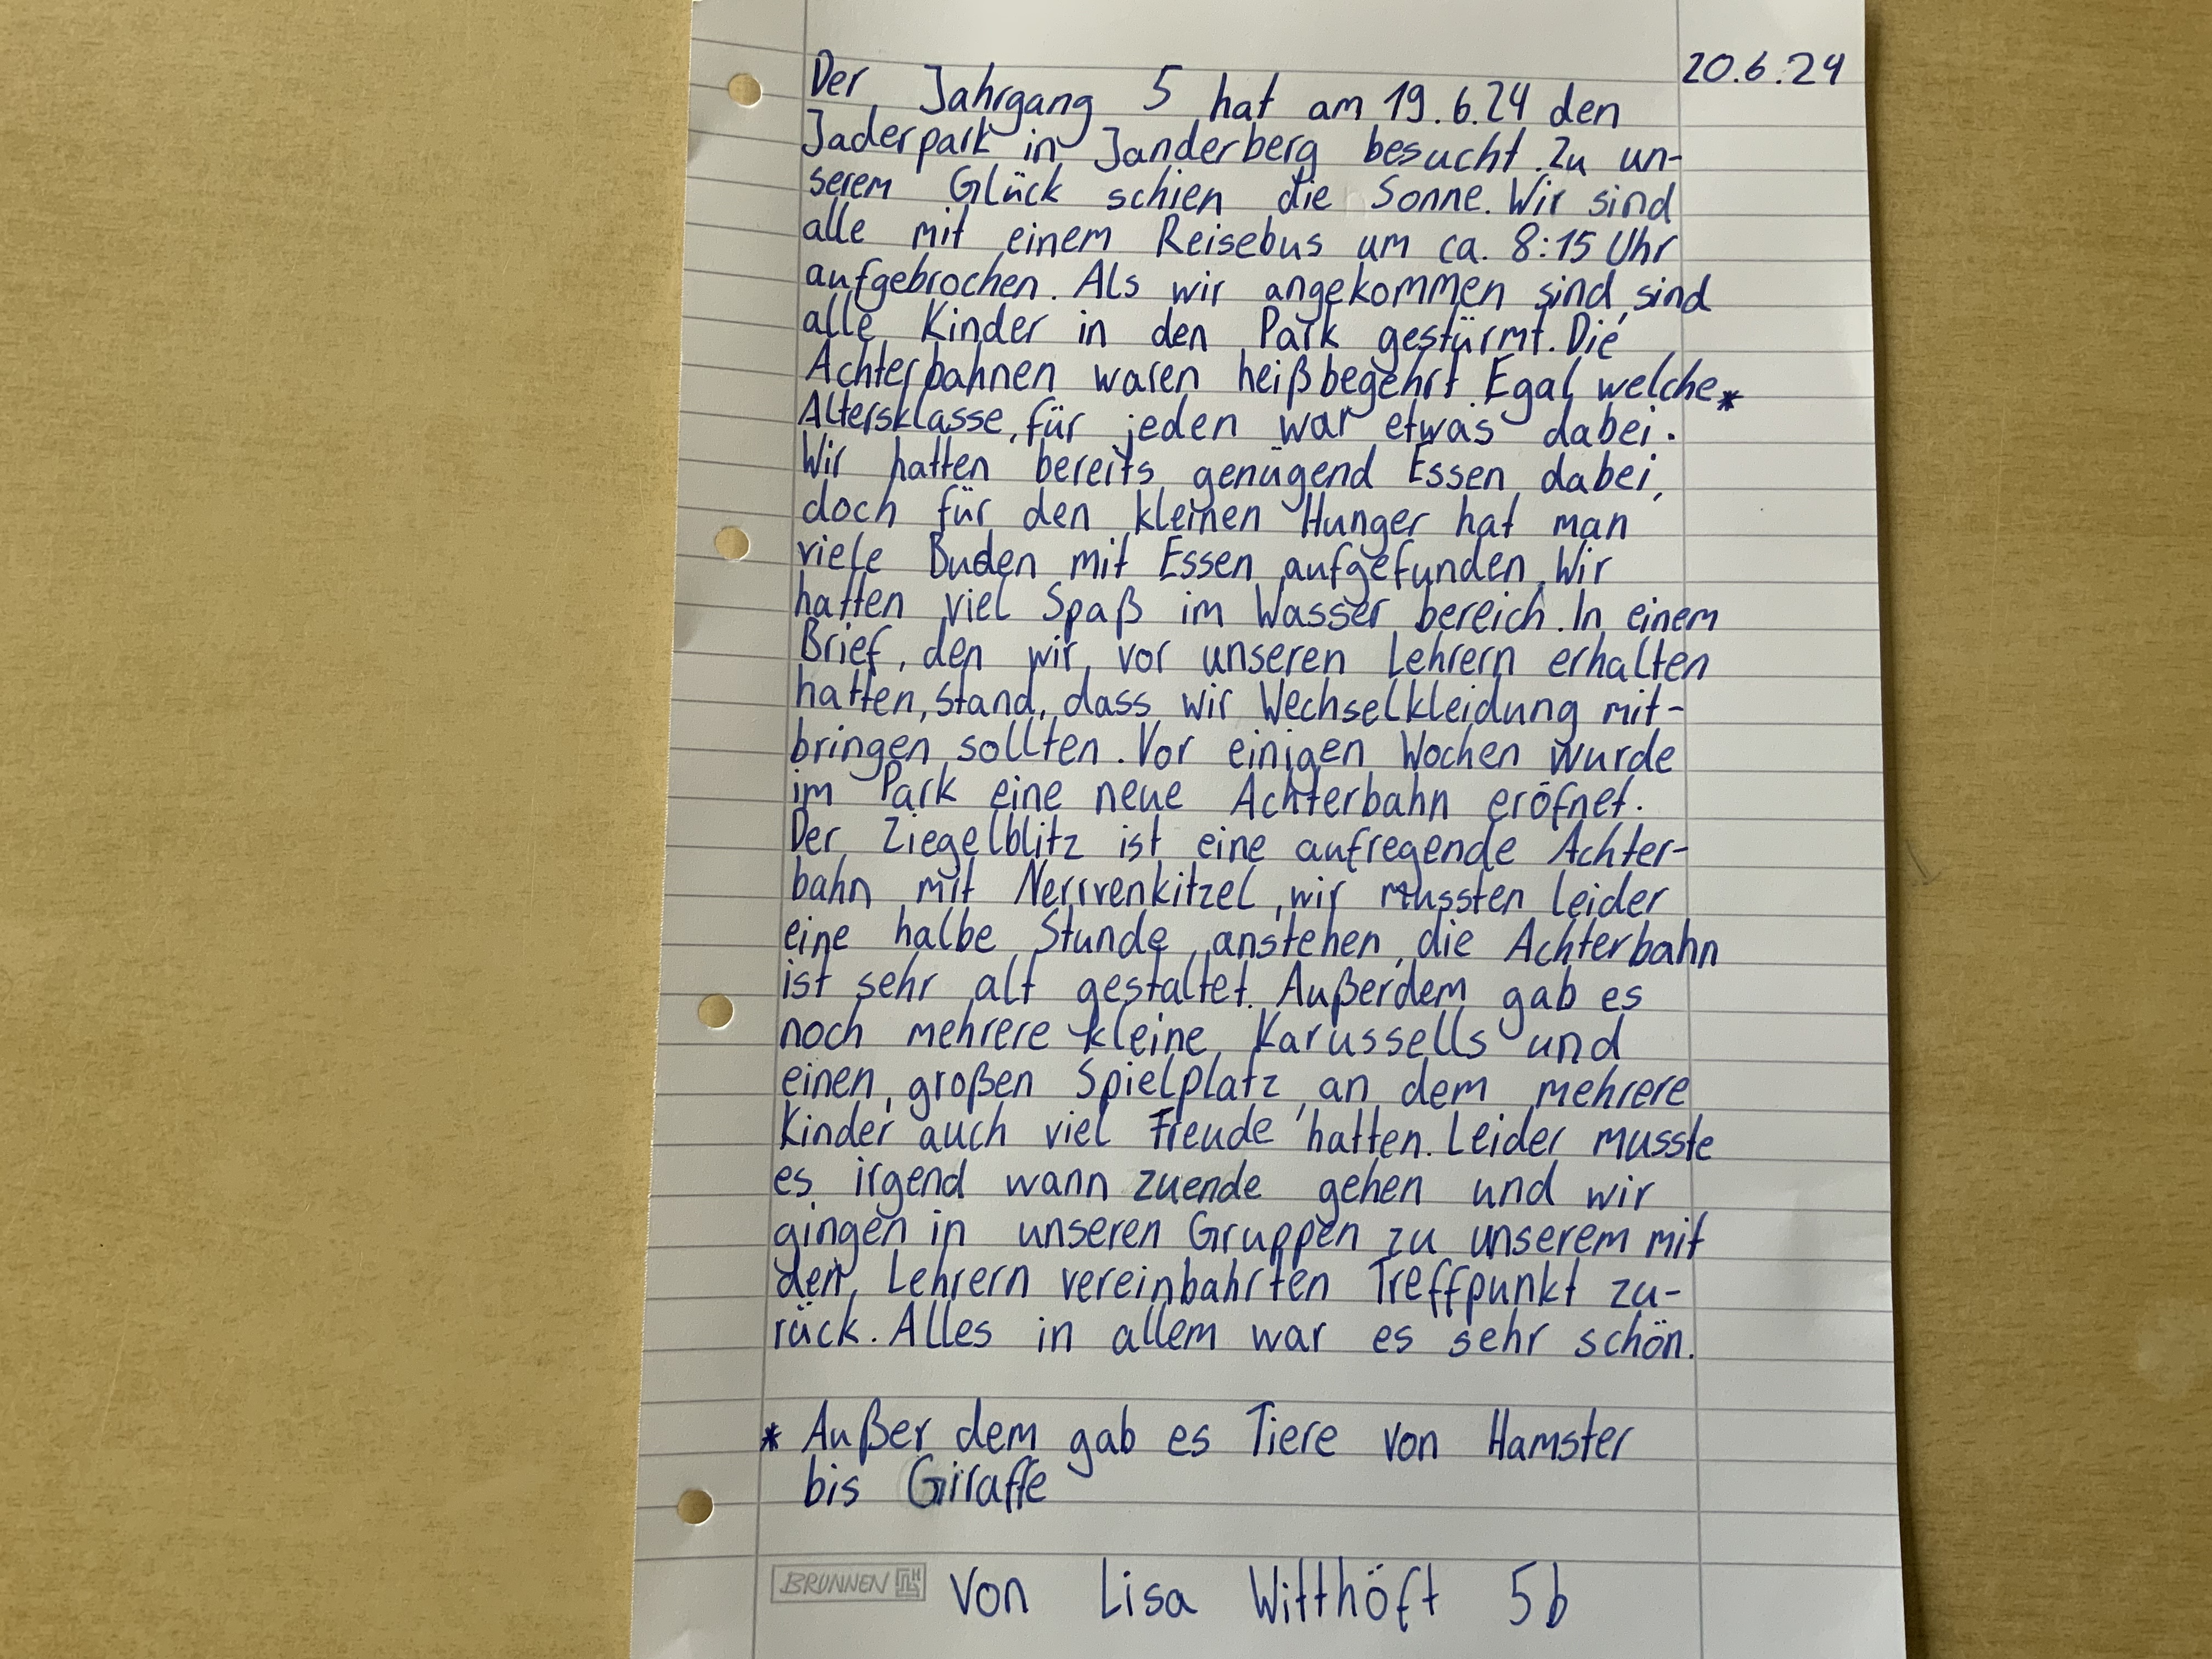 20.6.24
Der Jahrgang 5 hat am 19.6.24 den
Jaderpark in Janderberg besucht. Zu un-
serem Glück schien die Sonne. Wir sind
alle mit einem Reisebus um ca. 8:15 Uhr
aufgebrochen. Als wir angekommen sind, sind
alle Kinder in den Park gestürmt. Die
Achterbahnen waren heißbegehrt. Egal welche*
Altersklasse, für jeden war etwas dabei.
Wir hatten bereits genügend Essen dabei,
doch für den kleinen Hunger hat man
viele Buden mit Essen aufgefunden. Wir
hatten viel Spaß im Wasser bereich. In einem
Brief, den wir vor unseren Lehrern erhalten
hatten, stand, dass wir Wechselkleidung mit-
bringen sollten. Vor einigen Wochen wurde
im Park eine neue Achterbahn eröfnet.
Der Ziegelblitz ist eine aufregende Achter-
bahn mit Nerrvenkitzel, wir mussten leider
eine halbe Stunde anstehen, die Achterbahn
ist sehr alt gestaltet. Außerdem gab es
noch mehrere kleine Karussells und
einen großen Spielplatz, an dem mehrere
Kinder auch viel Freude hatten. Leider musste
es irgend wann zuende gehen und wir
gingen in unseren Gruppen zu unserem mit
den Lehrern vereinbahrten Treffpunkt zu-
rück. Alles in allem war es sehr schön.
* Außer dem gab es Tiere von Hamster
bis Giraffe
BRUNNEN von Lisa Witthöft 5b